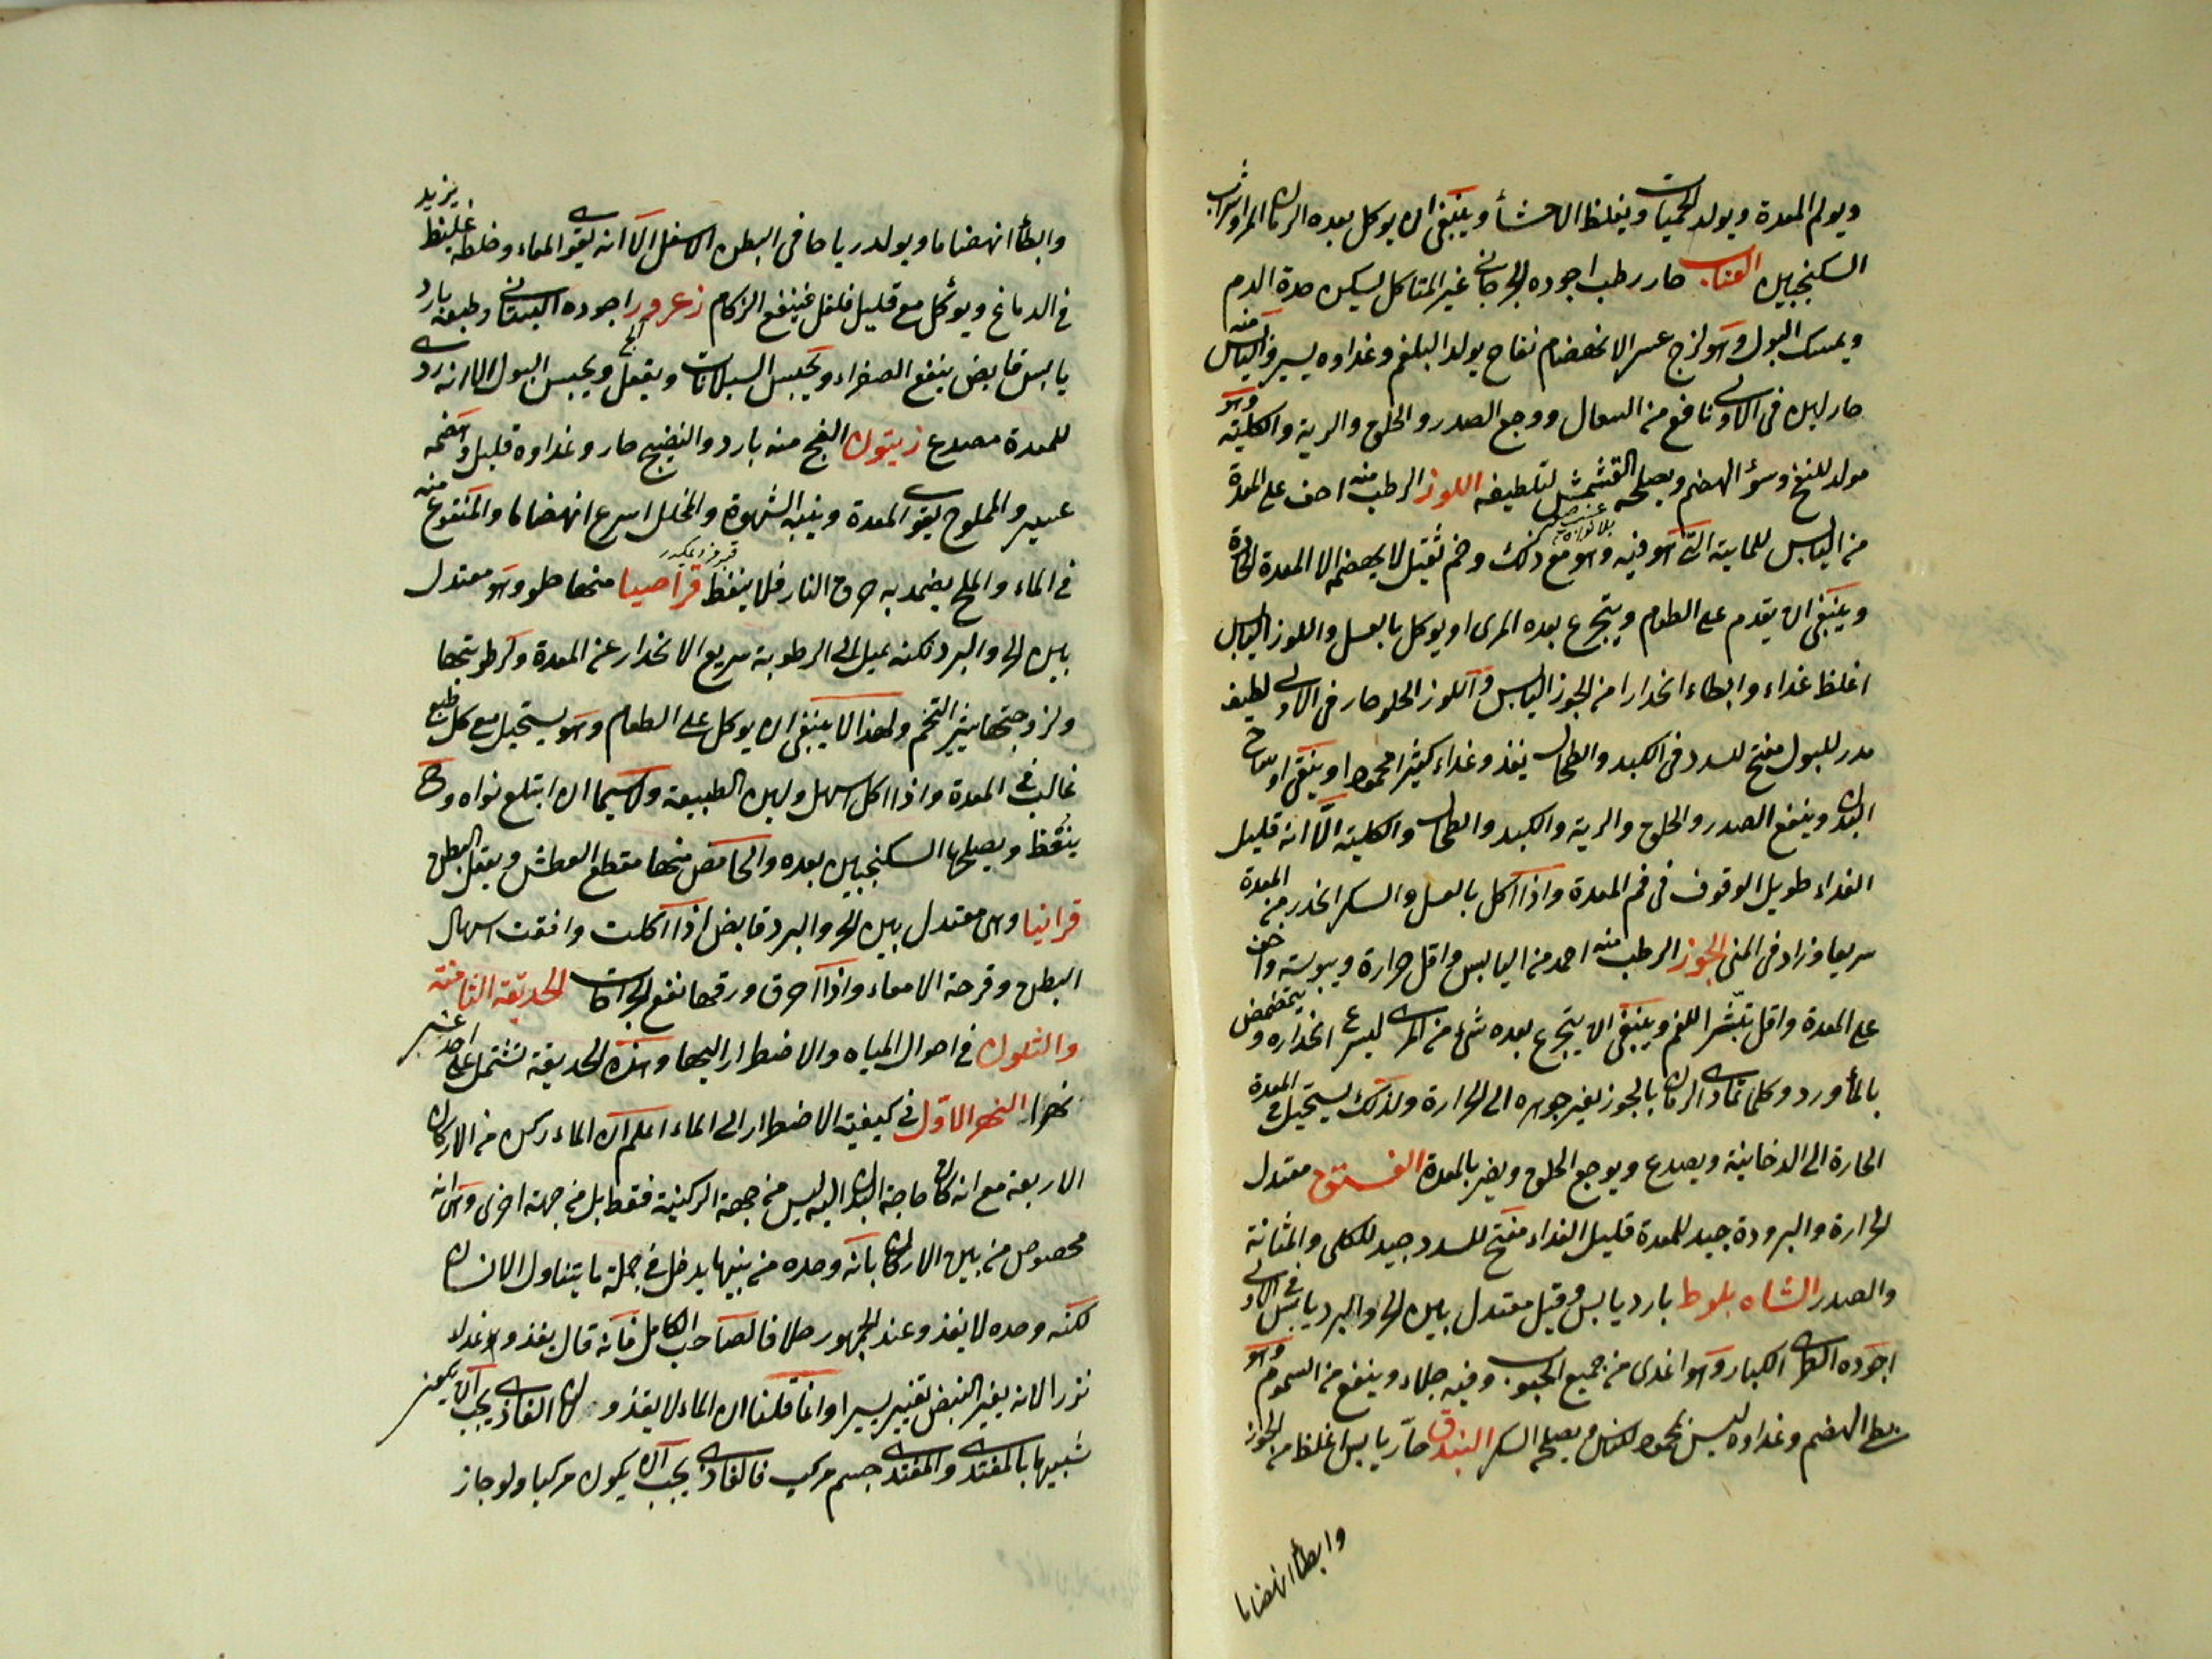 ويولم المعدة ويولد الحميات ويغلظ الاحشأ وينبغى ان يوكل بعده الرمان المز او شراب
السكنجبين العناب حار رطب اجوده الجرجانى غير المتاكل يسكن حدة الدم
ويمسك البول وهو لزج عسر الانهضام نفاخ يولد البلغم وغداوه يسير واليابس منه
حار لين فى الاولى نافع من السعال ووجع الصدر والحلق والرية والكلية وهو
مولد للنفخ وسؤ الهضم ويصلحه القشمش لتلطيفه اللوز الرطب منه اخف على المعدة
من اليابس للمايية التى هو فيه وهو مع ذلك وخم ثقيل لا يهضمه الا المعدة الحارة
وينبغى ان يقدم على الطعام ويتجرع بعده المرى او يوكل بالعسل واللوز اليابس
اغلظ غداء وابطاء انحدارا من الجوز اليابس واللوز الحلو حار فى الاولى لطيف
مدر للبول مفتح لسدد فى الكبد والطحال يغذو غداء كثيرا محمودا وينقى اوساخ
البدن وينفع الصدر والحلق والرية والكبد والطحال والكلية الا انه قليل
الغداء طويل الوقوف فى فم المعدة واذا اكل بالعسل والسكر انحدر من المعدة
سريعا وزاد فى المنى الجوز الرطب منه احمد من اليابس واقل حرارة ويبوسته واخف
على المعدة واقل تبثيرا للفم وينبغى ان يتجرع بعده شئ من المرى ليسرع انحداره ويتمضمض
بالمأ ورد وكلما تمادى الزمان بالجوز تغير جوهره الى الحرارة ولذلك يستحيل فى المعدة
الحارة الى الدخانية ويصدع ويوجع الحلق ويضر بالمعدة الفستق معتدل
الحرارة والبرودة جيد للمعدة قليل الغداء مفتح للسدد جيد للكلى والمثانة
والصدر الشاه بلوط بارد يابس وقيل معتدل بين الحر والبرد يابس فى الاولى
اجوده الطرى الكبار وهو اغدى من جميع الحبوب وفيه جلاء وينفع من السموم وهو
بطئ الهضم وغداوه ليس بمحمود لكنه يصلحه السكر البندق حار يابس اغلظ من الجوز
وابطأ انهضاما
وابطأ انهضاما ويولد رياحا فى البطن الاسفل الا انه يقوى المعاء وخلطه غليظ يزيد
فى الدماغ ويوكل مع قليل فلفل فينفع الزكام زعرور اجوده البستانى وطبعه بارد
يابس قابض ينفع الصفراء ويحبس السيلانات ويعقل ويحبس البول الا انه ردى
للمعدة مصدع زيتون الفج منه بارد والنضيج حار وغداوه قليل وهضمه
عسير والمملوح يقوى المعدة وينبه الشهوة والمخلل اسرع انهضاما والمنقوع منه
فى الماء والملح يضمد به حرق النار فلا ينفط قراصيا منها حلو وهو معتدل
بين الحر والبرد لكنه يميل الى الرطوبة سريع الانحدار عن المعدة ولرطوبتها
ولزوجتها يثير التخم ولهذا لا ينبغى ان يوكل على الطعام وهو يستحيل مع كل طبع
غالب فى المعدة واذا اكل اسهل ولين الطبيعة ولا سيما ان ابتلع نواه وهى
ينعظ ويصلحها السكنجبين بعده والحامض منها مقطع العطش ويعقل البطن
قرانيا وهى معتدل بين الحر والبرد قابض اذا اكلت وافقت اسهال
البطن وقرحة الامعاء واذا احرق ورقها نفع الجراحات الحديقة الثامنة
والثلون فى احوال المياه والاضطرار اليها وهذه الحديقة تشتمل على احد عشر
نهرا النهر الاول فى كيفية الاضطرار الى الماء اعلم ان الماء ركن من الاركان
الاربعة مع انه كان حاجة البدن اليه ليس من جهة الركنية فقط بل من جهة اخرى وهى انه
مخصوص من بين الاركان بانه وحده من بينها يدخل فى جملة ما يتناول الانسان
لكنه وحده لا يغذو عند الجمهور خلافا لصاحب الكامل فانه قال يغذو غداء
نزرا لانه يغير النبض تغييرا يسيرا وانما قلنا ان الماء لا يغذو لان الغاذى يجب ان يصير
شبيها بالمغتذى والمغتذى جسم مركب فالغاذى يجب ان يكون مركبا ولو جاز